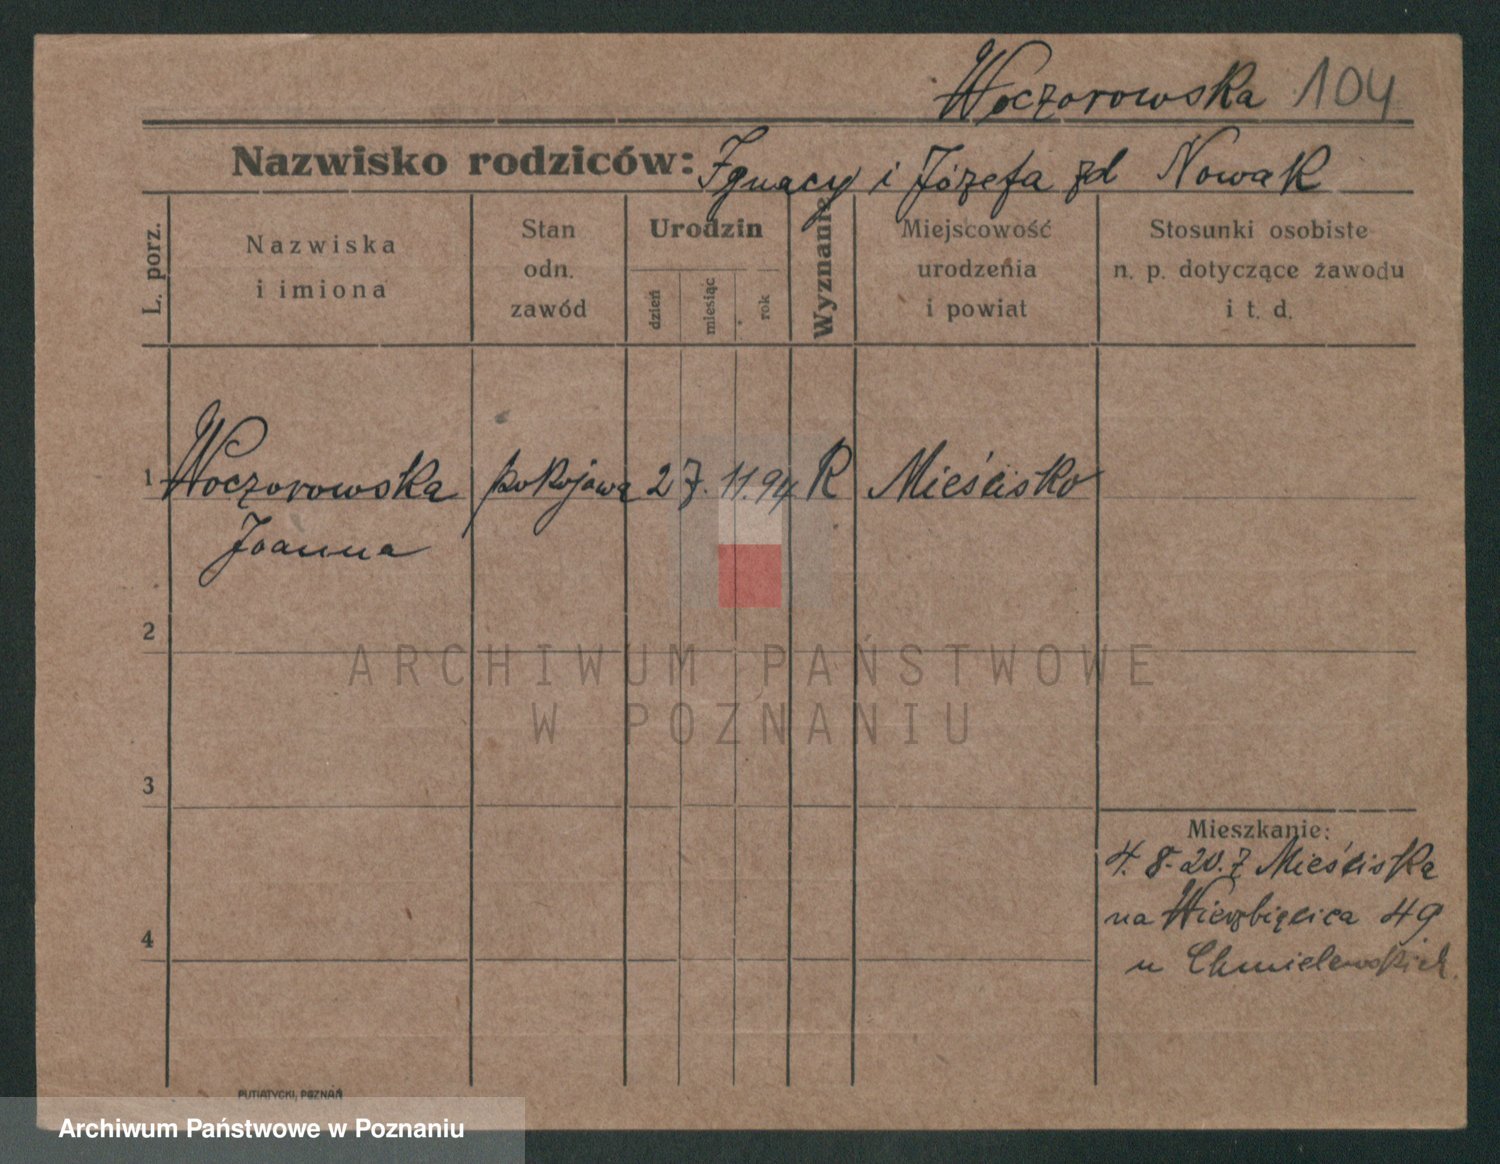 Woczorowska 104
Nazwisko rodziców: Ignacy i Józefa zd Nowak
L. porz.
Nazwiska
i imiona
Stan
odn.
zawód
Urodzin
dzień
miesiąc
rok
Wyznanie
Miejscowość
urodzenia
i powiat
Stosunki osobiste
n. p. dotyczące zawodu
i t. d.
1 Woczorowska pokojowa 27. 11. 94 R Mieścisko
Joanna
2
ARCHIWUM PAŃSTWOWE
W POZNANIU
3
Mieszkanie:
4. 8. 20. z Mieściska
na Wierzbięcica 49
u Chmielewskich.
4
PUTIATYCKI, POZNAŃ
Archiwum Państwowe w Poznaniu